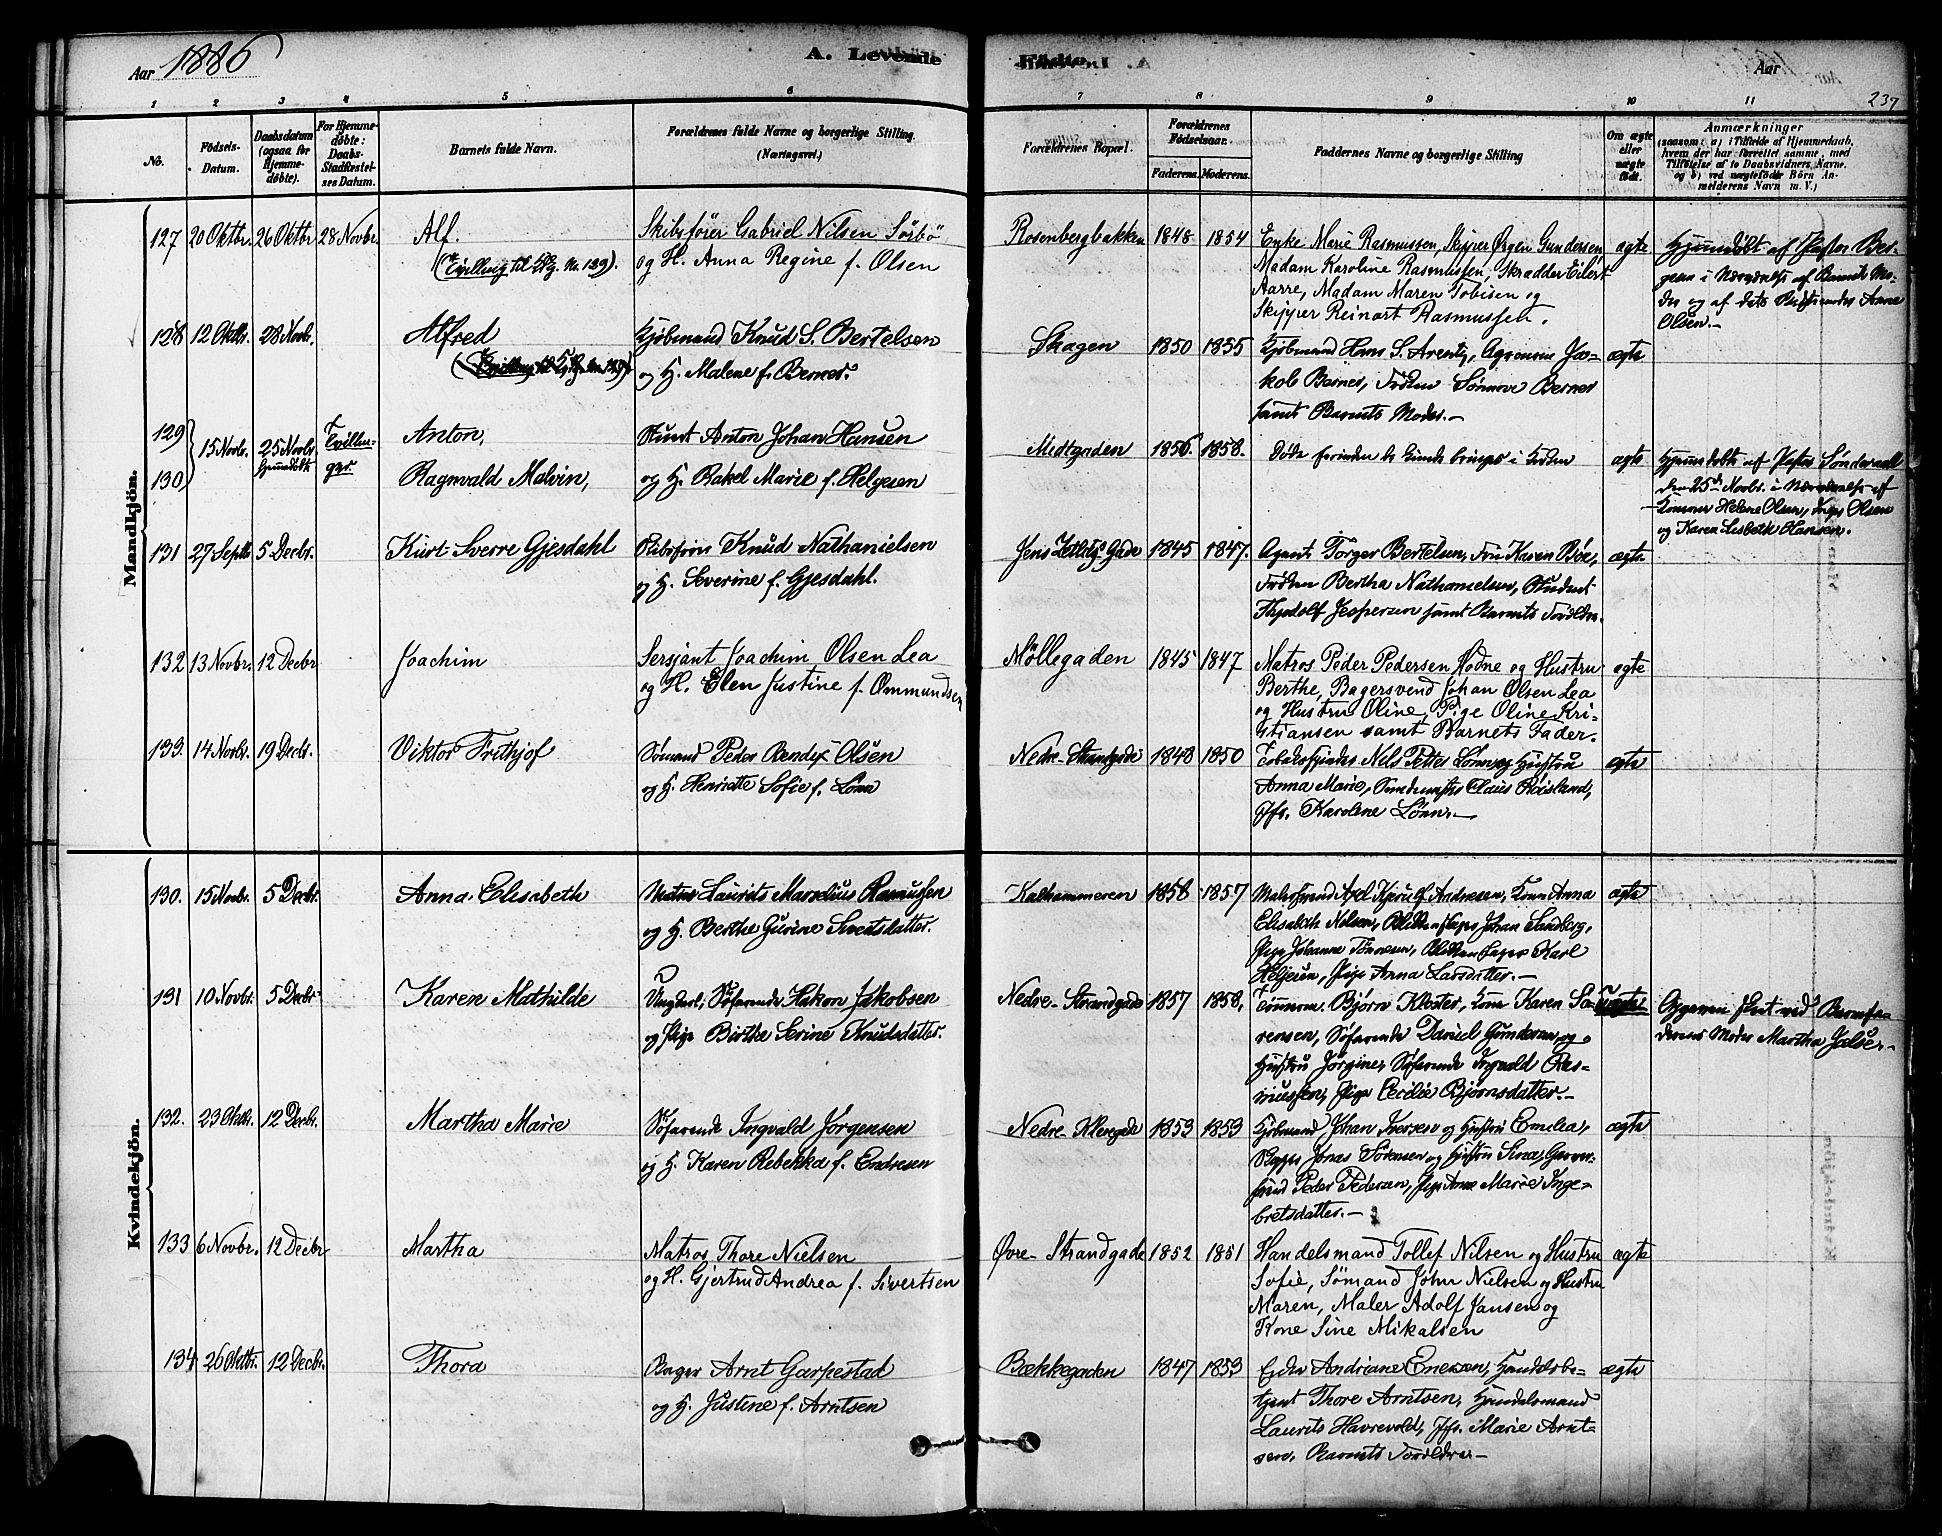 Aar 1886
A. Levende
Fødte.
Aar
237
1 2 3 4 5 6 7 8 9 10 11
No.
Födsels-Datum.
Daabsdatum (ogsaa for Hjemme-døbte).
For Hjemme-døbte: Daabs-Stadfæstel-ses Datum.
Barnets fulde Navn.
Forældrenes fulde Navne og borgerlige Stilling.
(Næringsvei.)
Forældrenes Bopæl.
Forældrenes Fødselsaar.
Faderens. Moderens.
Faddernes Navne og borgerlige Stilling
Om ægte eller uægte født.
Anmærkninger
(saasom: a) i Tilfælde af Hjemmedaab, hvem der har forrettet samme, med Tilføielse af to Daabsvidners Navne, og b) ved uægtefødte Børn Anmelderens Navn m. V.)
Mandkjön.
127 20 Oktbr. 26 Oktbr. 28 Novbr. Alf. Skibsfører Gabriel Nilsen Sørbö Rosenbergbakken 1848 1854 Enke Marie Rasmussen, Skipper Ørgen Gundersen, ægte Hjemmdøbt af Pastor Ber-
(Tvilling til No. 129). og H. Anna Regine f. Olsen Madam Karoline Rasmussen, Skrædder Eilert gesen i Nærværelse af Barnets Mo-
Aarre, Madam Maren Tobisen og der og af dets Anna
Skipper Reinart Rasmussen. Olsen.-
128 12 Oktbr. 28 Novbr. Alfred Kjøbmand Knud S. Bertelsen Skagen 1850 1855 Kjøbmand Hans S. Arentz, Agronom Ja- ægte
og H. Malene f. Berner. kob Berner, Frøken Sønnove Berner
samt Barnets Moder.-
129 15 Novbr. 25 Novbr. Tvillin- Anton, Anton Johan Hansen Midtgaden 1856. 1858. Døde forinden de kunde bringes i Kirken ægte Hjemmedøbte af Pastor
130 Hjemmedøbte ger. Ragnvald Malvin, og H. Rakel Marie f. Helgesen den 25de Novbr. i Nærværelse af
Konerne Helene Olsen, Olsen
og Karen Lisbeth Hansen.
131 27 Septbr 5 Decbr. Kurt Sverre Gjesdahl Knud Nathanielsen Jens Zetlitz's Gade 1845 1847. Agent Torger Bertelsen, Fru Karen Bøe, ægte
og H. Severine f. Gjesdahl. Frøken Bertha Nathanielsen, Student
Thjodolf Jespersen samt Barnets Forældre.
132 13 Novbr. 12 Decbr Joachim Sersjant Joachim Olsen Lea Möllegaden 1845 1847 Matros Peder Pedersen Hodne og Hustru ægte
og H. Elen Justine f. Ommundsen Berthe, Bagersvend Johan Olsen Lea
og Hustru Oline, Pige Oline Kri-
stiansen samt Barnets Fader.
133. 14 Novbr. 19 Decbr. Viktor Frithjof Sømand Peder Bendix Olsen Nedre Strandgade 1848 1850 Nels Petter Lønn og Hustru ægte
og H. Henriette Sofie f. Lønn Anna Marie, Claus Røisland,
Jfr. Karoline Lønn.-
Kvindekjön.
130. 15 Novbr. 5 Decbr. Anna Elisabeth Laurits Marselius Rasmussen Kalhammeren 1858 1857 Axel Kjerulf Andresen, Kone Anna ægte
og H. Berthe Gurine Sivertsdatter. Elisabeth Nielsen, Johan Sandberg,
Pige Johanne Tønnesen, Karl
Pige Anna Larsdatter.-
131 10 Novbr. 5 Decbr. Karen Mathilde Ungkarl, Søfarende Hakon Jakobsen Nedre Strandgade 1857 1858. Tømmerm. Bjørn Kloster, Kone Karen Sø- Uægte Opgaven skeet ved Barnefa-
og Pige Birthe Serine Knudsdatter. rensen, Søfarende Daniel Gundersen og derens Moder Martha
Hustru Jørgine, Søfarende Ingvald Ras-
mussen, Pige Cecilie Bjørnsdatter.-
132. 23 Oktbr. 12 Decbr. Martha Marie Søfarende Ingvald Jørgensen Nedre Klevgade 1853 1853 Kjøbmand Johan Iversen og Hustru Emilea, ægte
og H. Karen Rebekka f. Endresen Jonas Sørensen og Hustru Sina,
Peder Pedersen, Pige Anne Marie Inge-
bretsdatter.-
133 6 Novbr. 12 Decbr Martha Matros Thore Nielsen Øvre Strandgade 1852 1851 Handelsmand Tollef Nilsen og Hustru ægte
og H. Gjertrud Andrea f. Sivertsen Sofie, Sømand John Nielsen og Hustru
Maren, Maler Adolf Jansen og
Kone Sine Mikalsen
134 26 Oktbr. 12 Decbr. Thora Bager Arnt Garpestad Bækkegaden 1847 1853 Enke Andriane Enersen, Handelsbe- ægte
og H. Justine f. Arntsen tjent Thore Arntsen, Handelsmand
Laurits Havrevold, Jfr. Marie Arnt-
sen, Barnets Forældre-